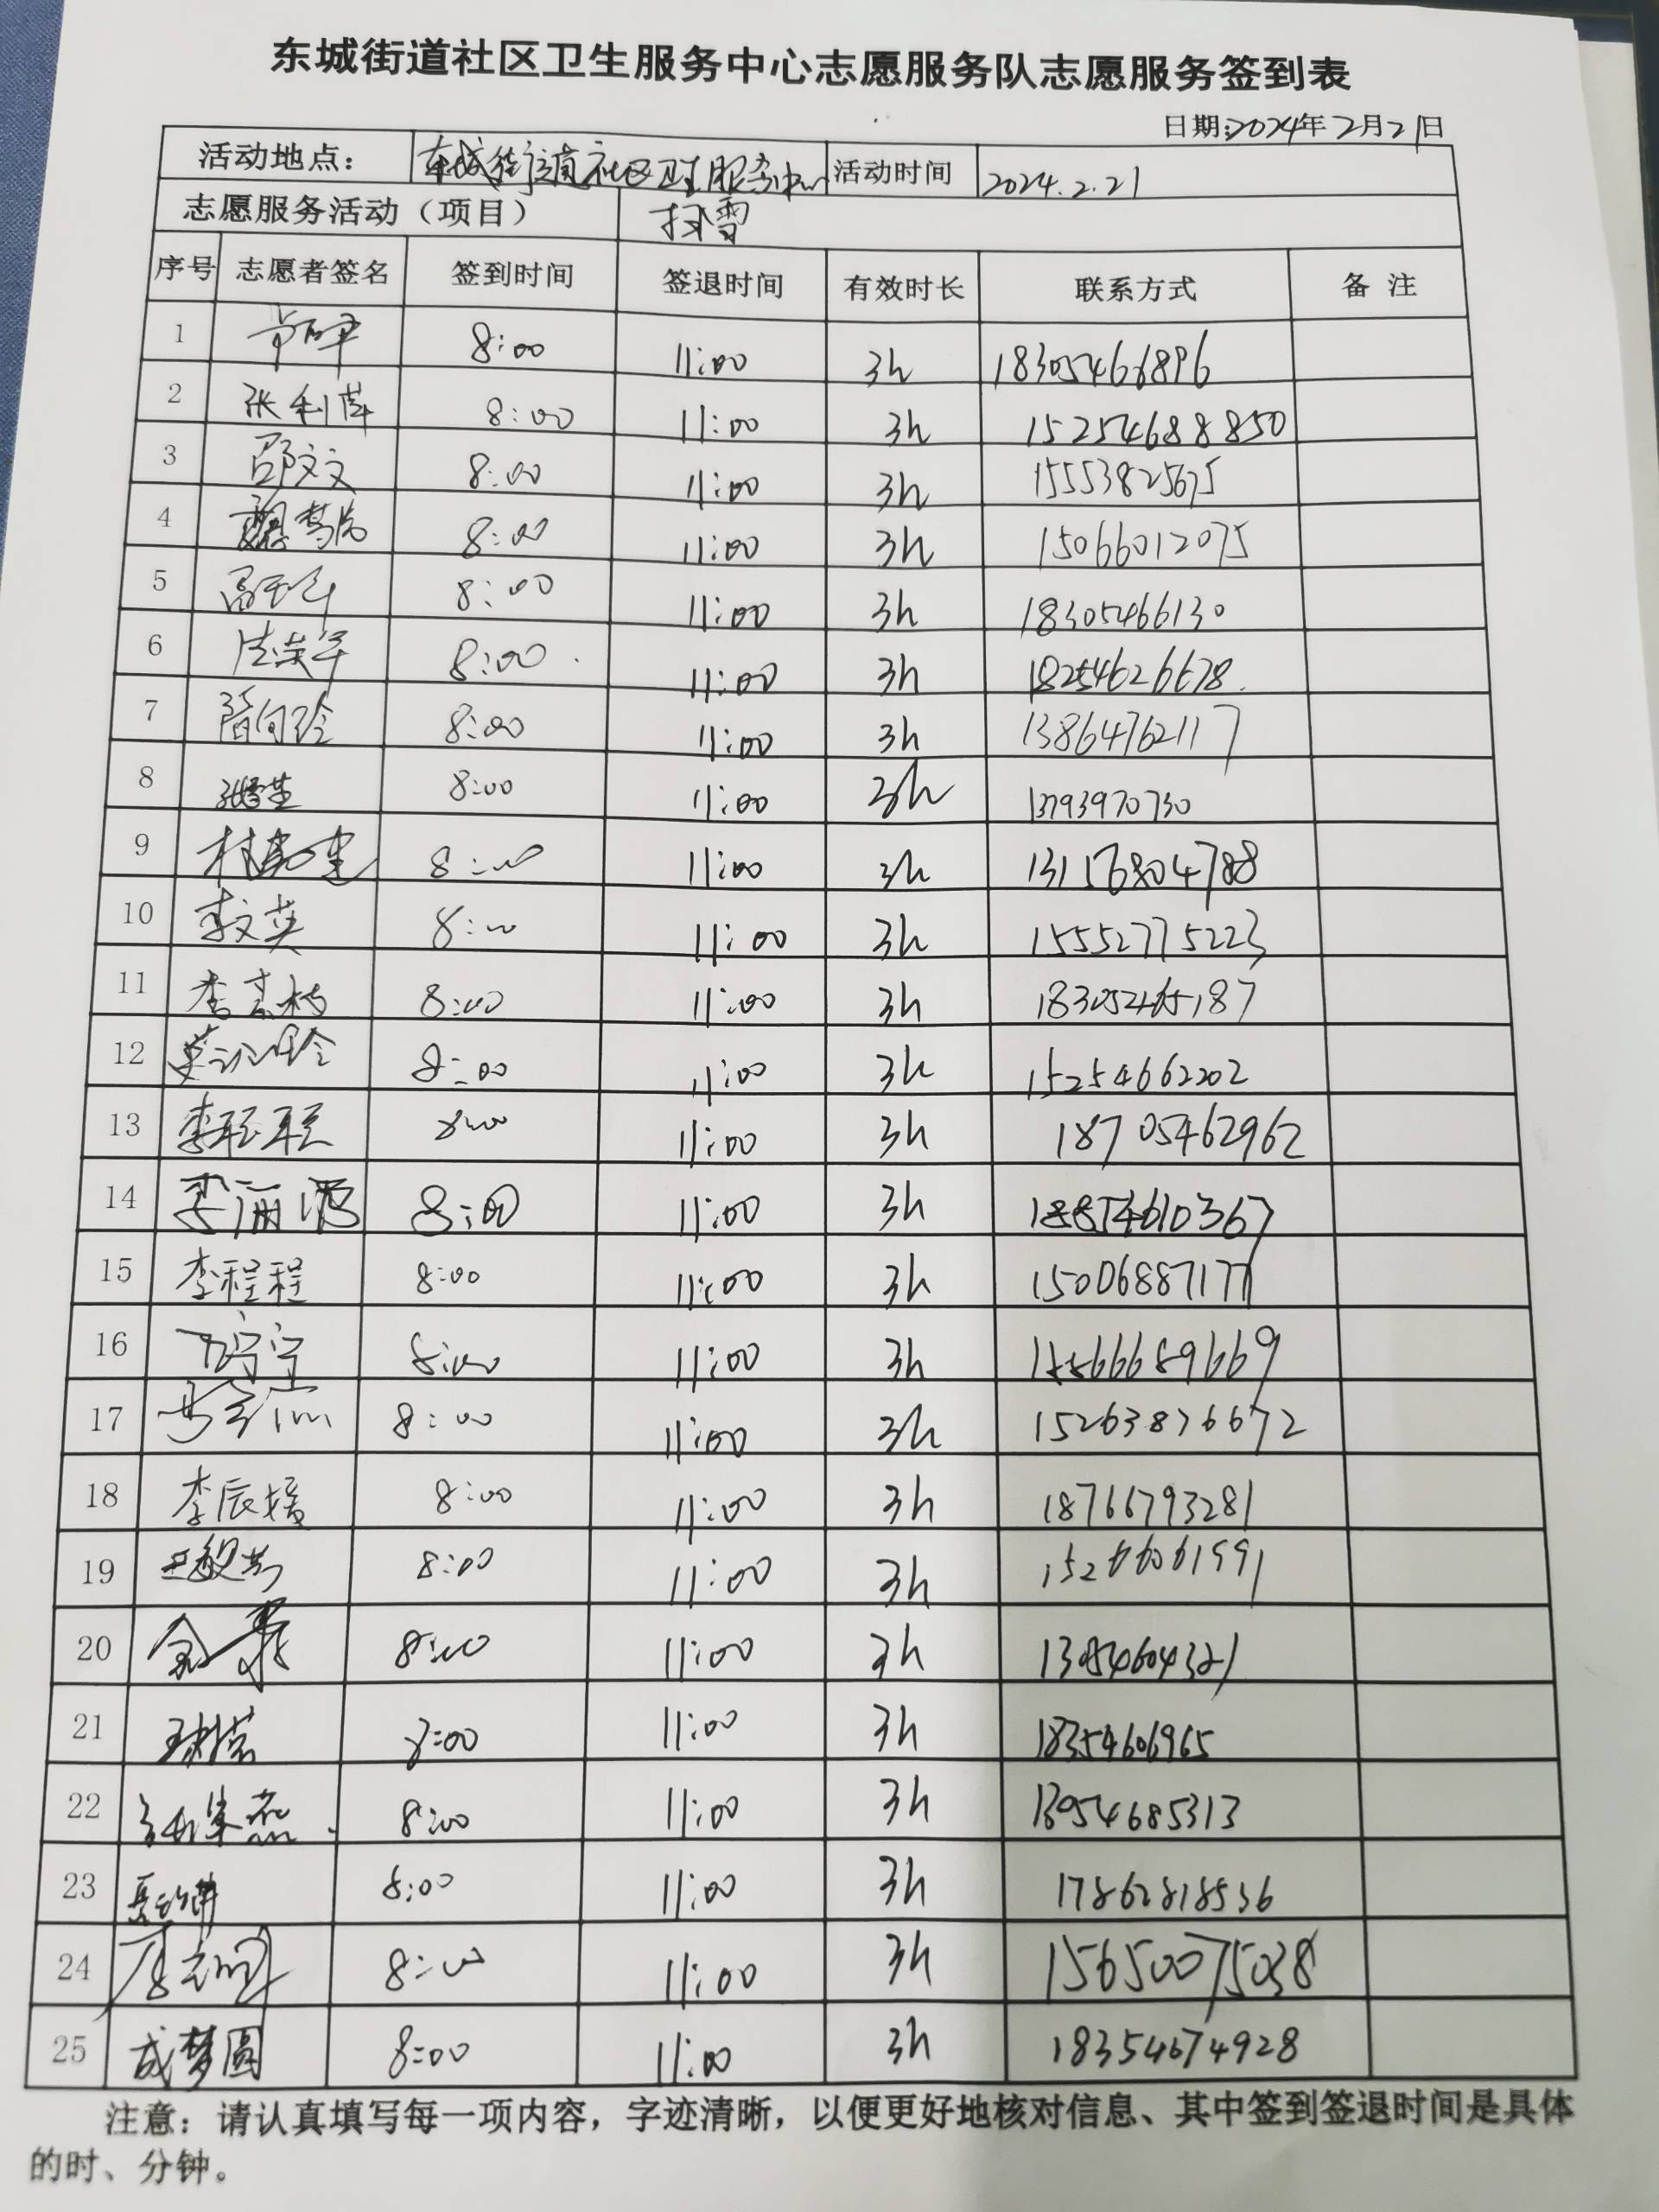 东城街道社区卫生服务中心志愿服务队志愿服务签到表
日期:2024年2月21日
活动地点: 东城街道社区卫生服务中心 活动时间 2024.2.21
志愿服务活动（项目） 扫雪
序号 志愿者签名 签到时间 签退时间 有效时长 联系方式 备 注
1 8:00 11:00 3h 18305466896
2 张利萍 8:00 11:00 3h 15254688850
3 邵文文 8:00 11:00 3h 15553825675
4 8:00 11:00 3h 15066012075
5 8:00 11:00 3h 18305466130
6 8:00 11:00 3h 18254626678
7 隋向玲 8:00 11:00 3h 13864762117
8 8:00 11:00 3h 13793970730
9 8:00 11:00 3h 13176804788
10 李文英 8:00 11:00 3h 15552775223
11 8:00 11:00 3h 18305465187
12 8:00 11:00 3h 15254662202
13 8:00 11:00 3h 18705462962
14 8:00 11:00 3h 18854610367
15 李程程 8:00 11:00 3h 15006887177
16 8:00 11:00 3h 15866689669
17 8:00 11:00 3h 15263876672
18 李辰媛 8:00 11:00 3h 18766793281
19 王毅芳 8:00 11:00 3h
20 8:00 11:00 3h
21 8:00 11:00 3h 18354606965
22 8:00 11:00 3h 13954685313
23 8:00 11:00 3h 17862818536
24 8:00 11:00 3h 15650075038
25 成梦圆 8:00 11:00 3h 18354674928
注意：请认真填写每一项内容，字迹清晰，以便更好地核对信息、其中签到签退时间是具体
的时、分钟。